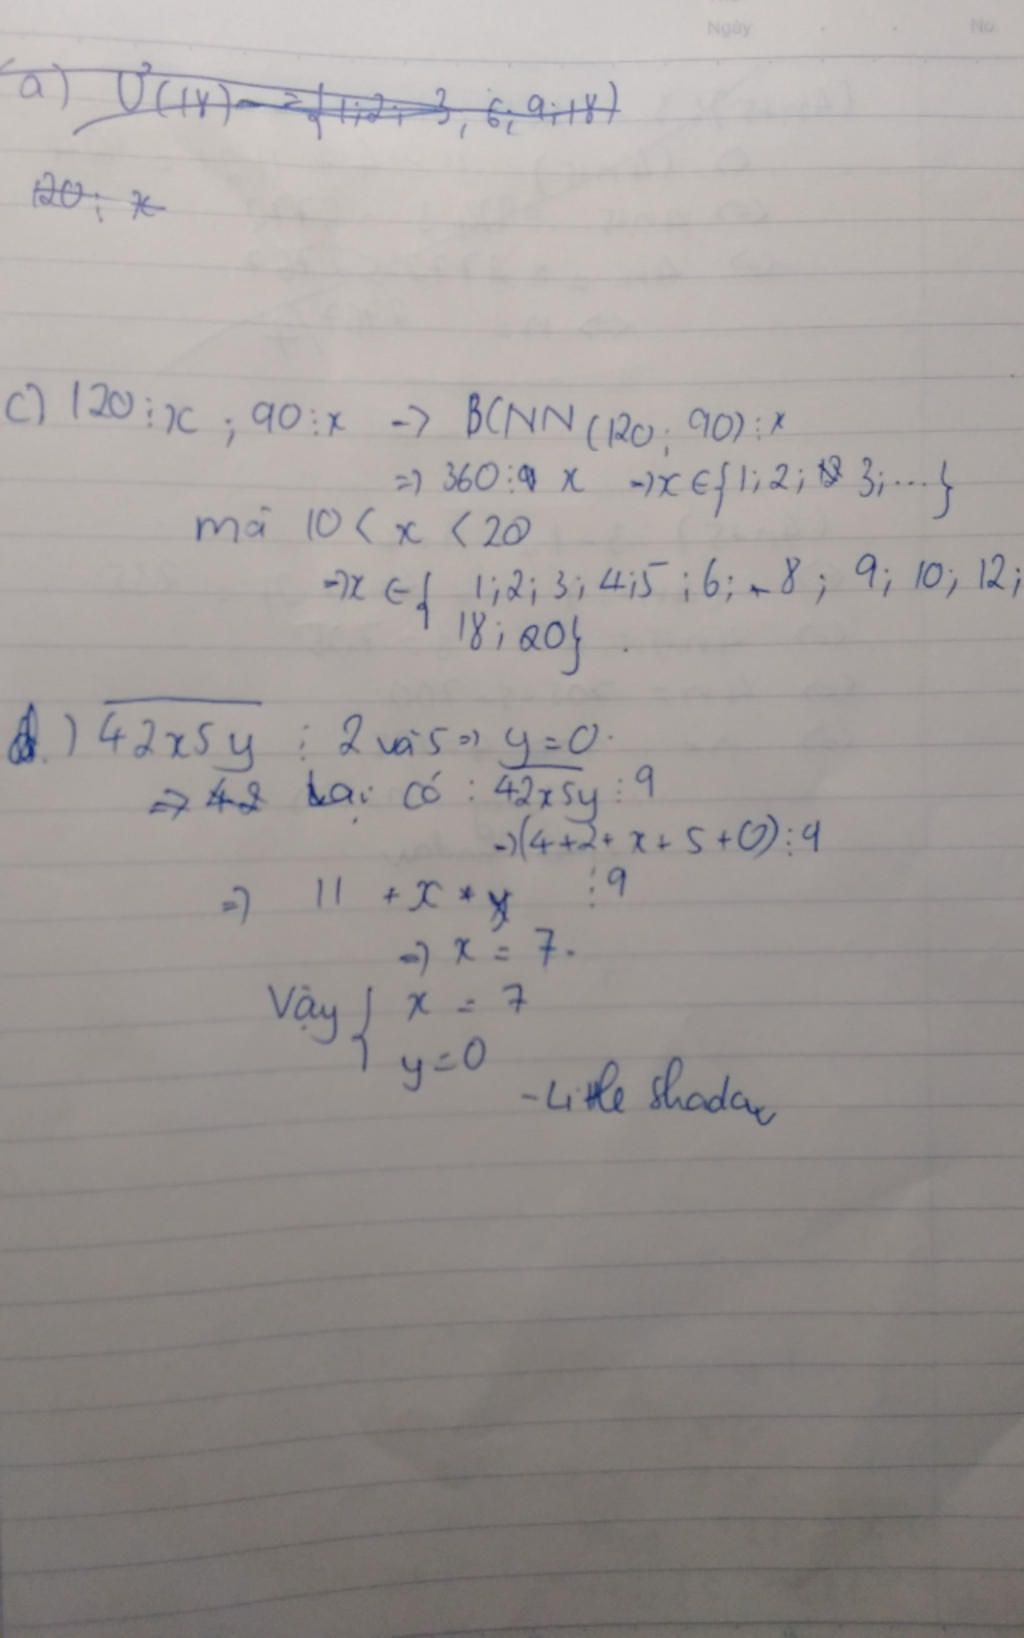 Ngày No.
a) Ư(18) = {1;2; 3; 6; 9; 18}
120 ⋮ x
c) 120 ⋮ x ; 90 ⋮ x -> BCNN (120; 90) ⋮ x
=> 360 ⋮ x -> x ∈ { 1; 2; 3; ... }
mà 10 < x < 20
-> x ∈ { 1; 2; 3; 4; 5 ; 6; 8 ; 9; 10; 12;
18; 20} .
d.) 42x5y ⋮ 2 và 5 => y = 0.
=> 42 Lại có : 42x5y ⋮ 9
-> (4+2+ x + 5 + 0) ⋮ 9
=> 11 + x ⋮ 9
=> x = 7.
Vậy { x = 7
y = 0
- Little Shadow